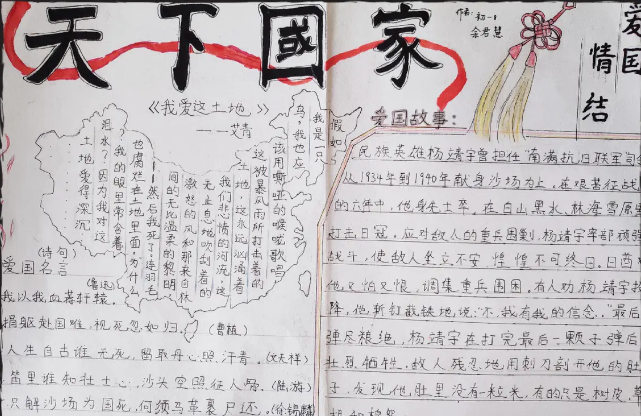 天下國家
作者:初一1
余君慧
爱国
情
结
《我爱这土地》
——艾青
假如
我是一只
鸟,我也应
该用嘶哑的喉咙歌唱
这被暴风雨所打击着的
土地,这永远汹涌着
我们悲愤的河流,这
无止息地吹刮着的
激怒的风,和那来自林
间的无比温柔的黎明
——然后我死了,连羽毛
也腐烂在土地里面。为什么
?我的眼里常含着
泪水?因为我对这
土地爱得深沉......
(诗句)
爱国名言
(鲁迅)
我以我血荐轩辕.
捐躯赴国难,视死忽如归.(曹植)
人生自古谁无死,留取丹心照汗青.(文天祥)
笛里谁知壮士心,沙头空照征人骨.(陆游)
只解沙场为国死,何须马革裹尸还.(徐锡麟)
爱国故事:
民族英雄杨靖宇曾担任南满抗日联军司
从1934年到1940年献身沙场为止,在艰苦征战
的六年中,他身先士卒,在白山黑水、林海雪原
打击日寇,应对敌人的重兵围剿,杨靖宇率部顽强
战斗,使敌人坐立不安,惶惶不可终日.日酋
他又怕又恨,调集重兵围困.有人劝杨靖宇投
降,他斩钉截铁地说:"不,我有我的信念."最后
弹尽粮绝,杨靖宇在打完最后一颗子弹后
壮烈牺牲.敌人残忍地用刺刀剖开他的肚
子,发现他肚里没有一粒米,有的只是树皮、